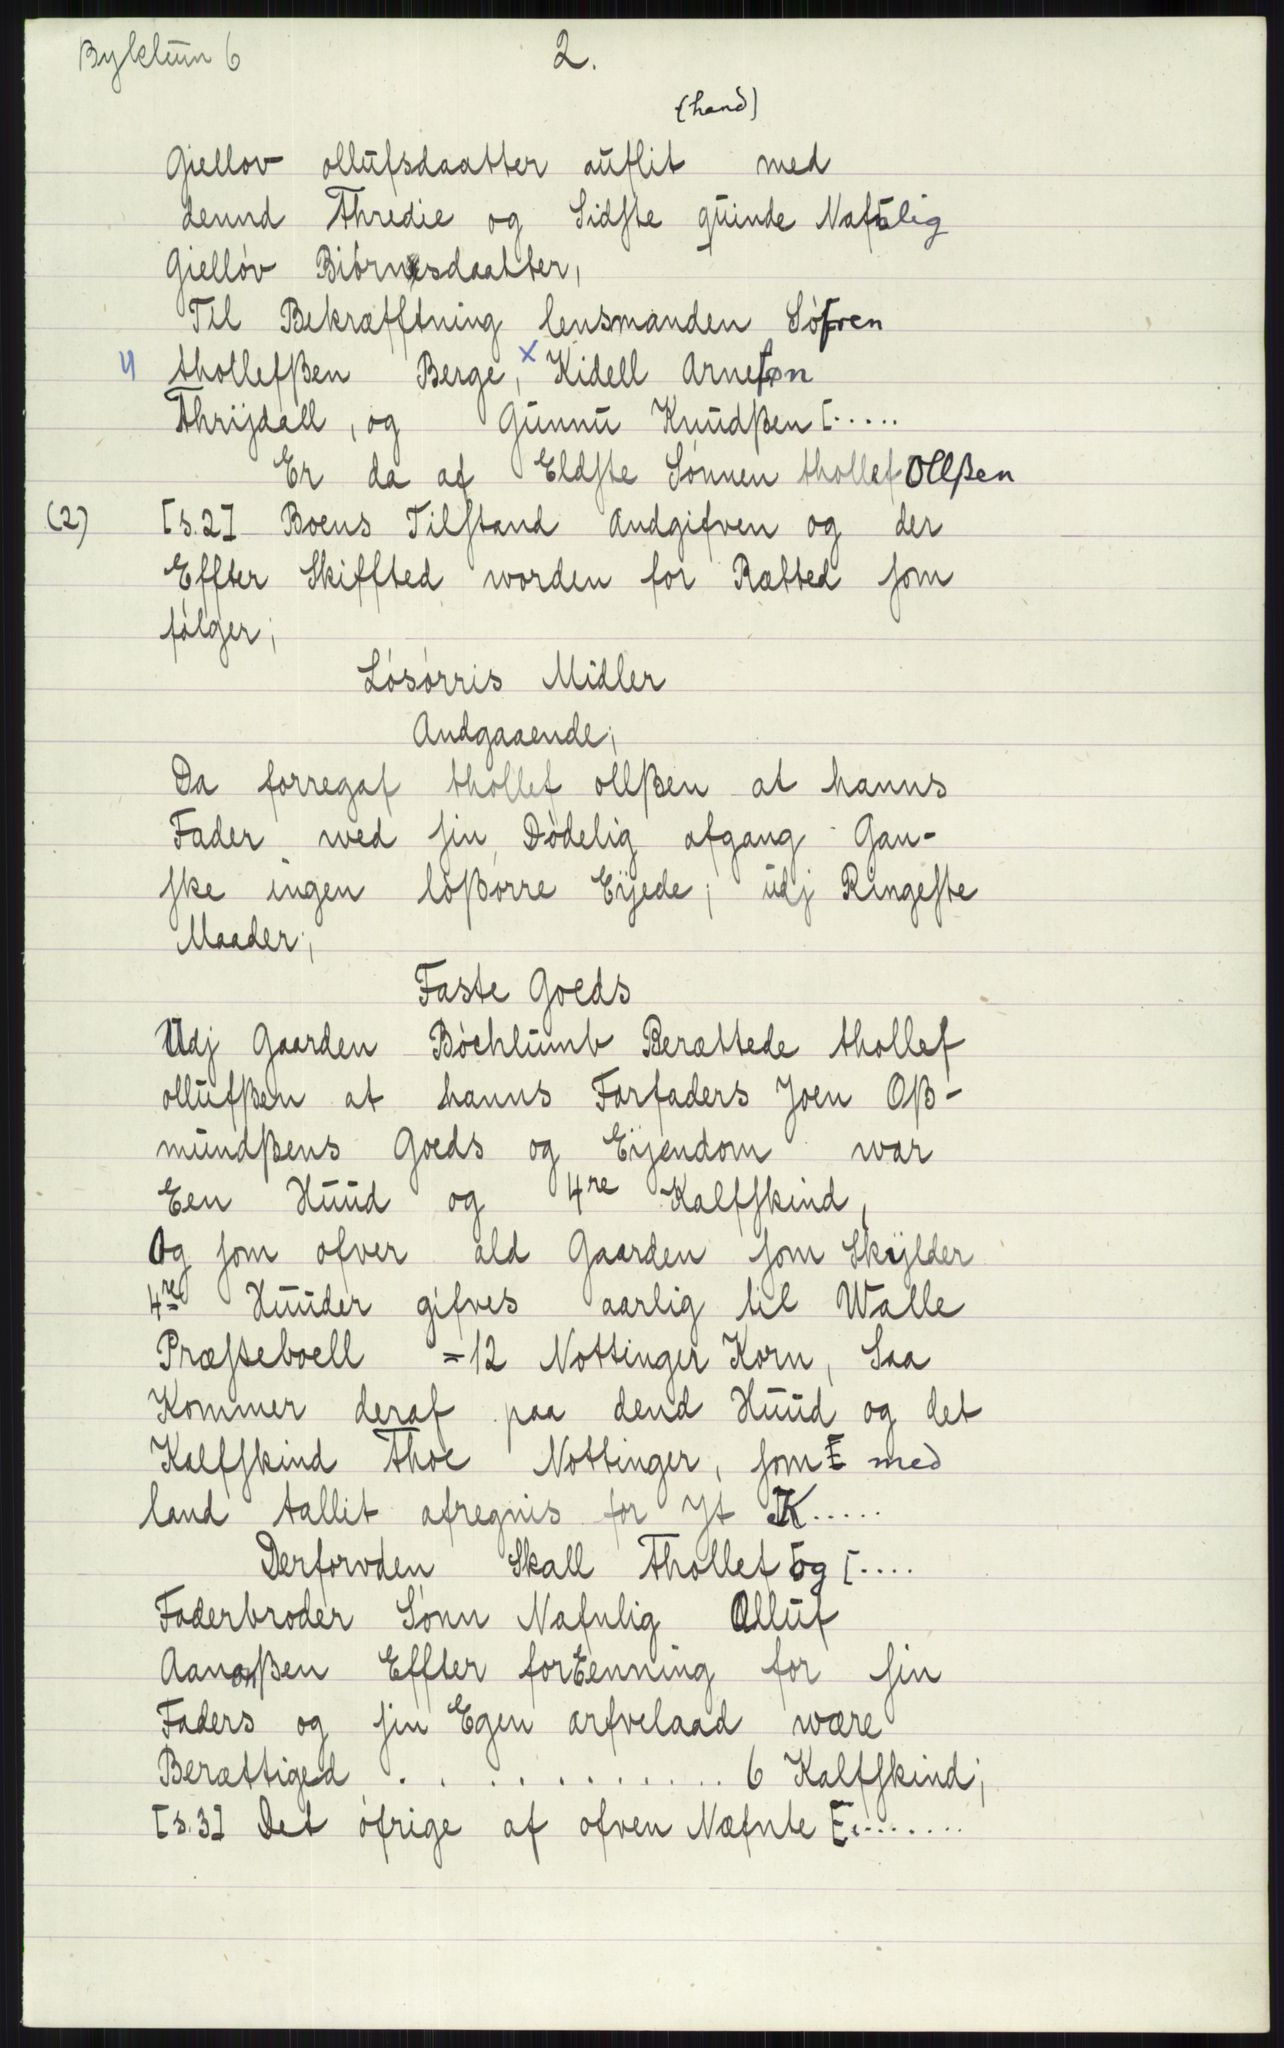 Byklum 6
2.
(hand)
Giellov ollufsdaatter auflit med
dennd Thredie og Sidste quinde Nafnlig
Gielløv Biörnsdaatter,
Til Bekræfftning lensmanden Söfren
4 thollefßen Berge, x Kidell Arneson
Thrijdall, og Gunnu Knudßen [.....
Er da af Eldste Sönnen thollef Ollßen
(2) [s.2] Boens Tilstand Andgifven og der
Effter Skiffted worden for Rætted som
fölger;
Lösörris Midler
Andgaaende;
Da forregaf thollef ollßen at hanns
Fader wed sin Dödelig afgang Gan-
ske ingen lößörre Eijede; udj Ringeste
Maader;
Faste Goeds
Udj Gaarden Böchlumb Berættede thollef
ollufßen at hanns Farfaders Joen Oß-
mundßens Goeds og Eijendom war
Een Huud og 4re Kalfskind,
Og som ofver ald Gaarden som Skylder
4re Huuder gifves aarlig til Walle
Præsteboell =12 Nottinger Korn, Saa
Kommer deraf paa dend Huud og det
Kalfskind Thoe Nottinger, som [ med
land tallit afregnis for Jt K.....
Derforvden Skall Thollef og [....
Faderbroder Sönn Nafnlig Olluf
Aanonßen Effter forEenning for sin
Faders og sin Egen arfvelaad wære
Berættiged . . . . . . . . . . . . 6 Kalfskind;
[s.3] Det öfrige af ofven Næfnte [........